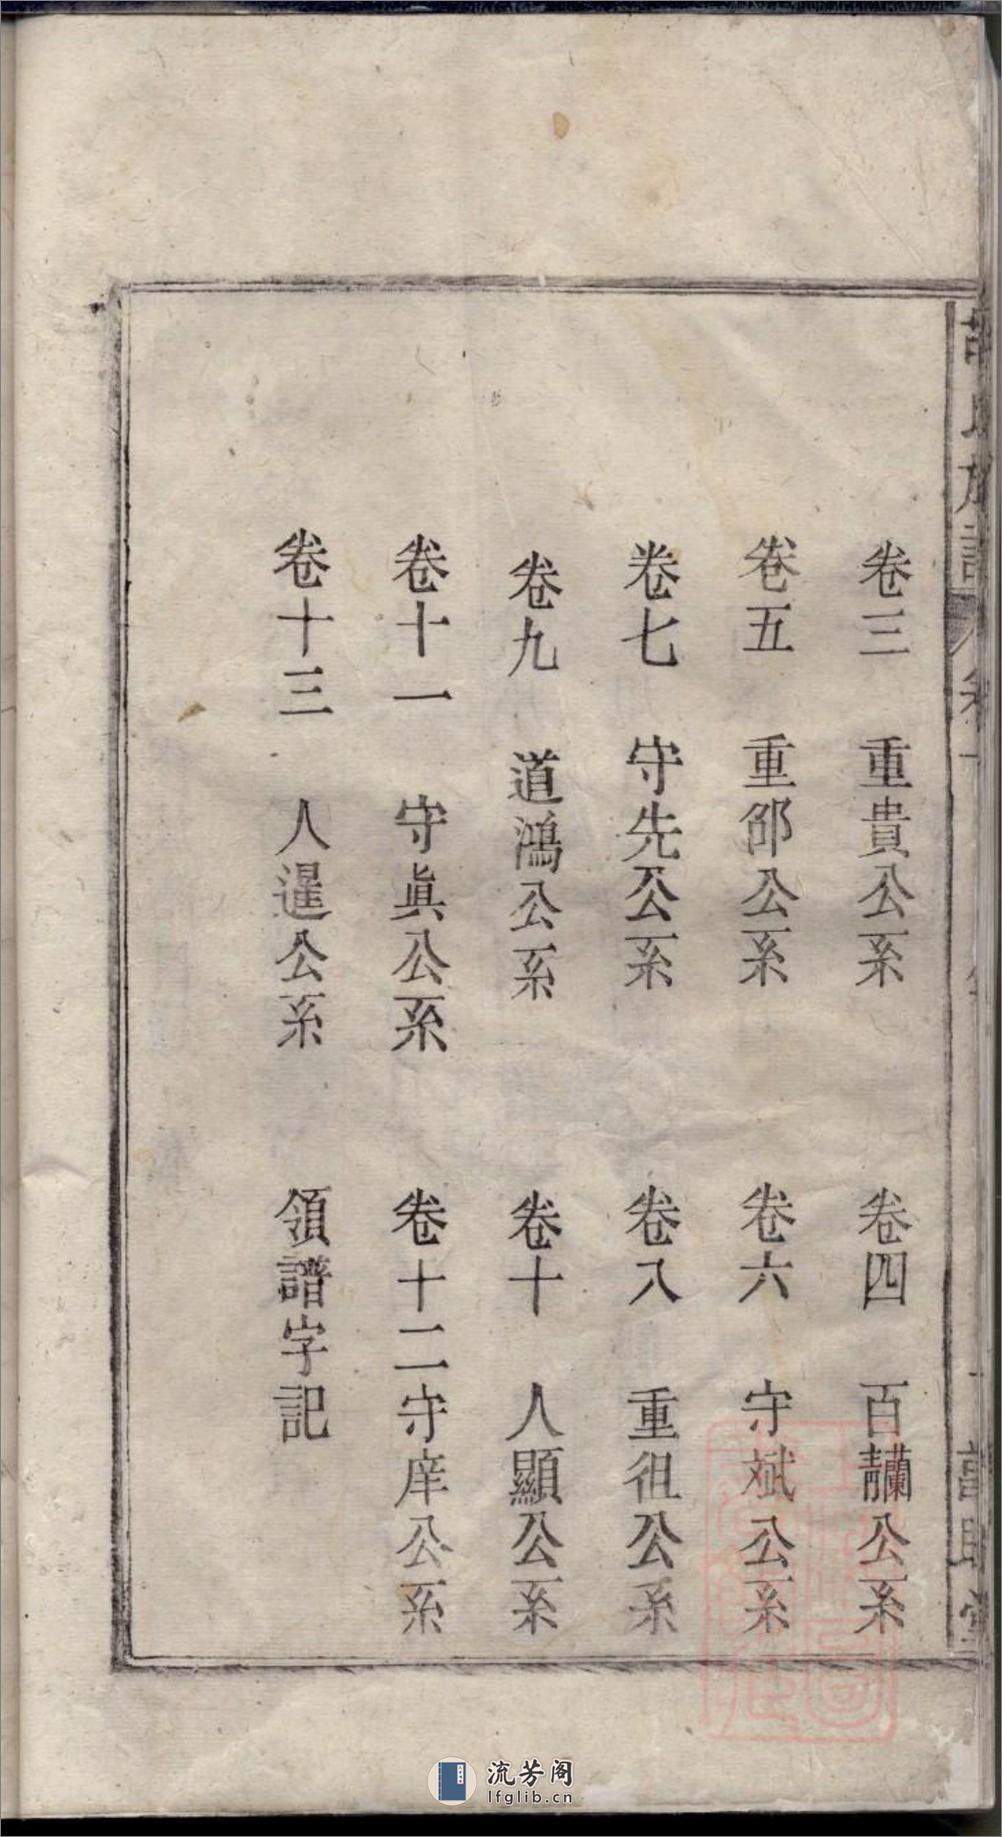 卷三 重貴公系 卷四 百讕公系
卷五 重邵公系 卷六 守斌公系
卷七 守先公系 卷八 重徂公系
卷九 道鴻公系 卷十 人顯公系
卷十一 守眞公系 卷十二 守庠公系
卷十三 人暹公系 領譜字記
流芳阁
lfglib.cn